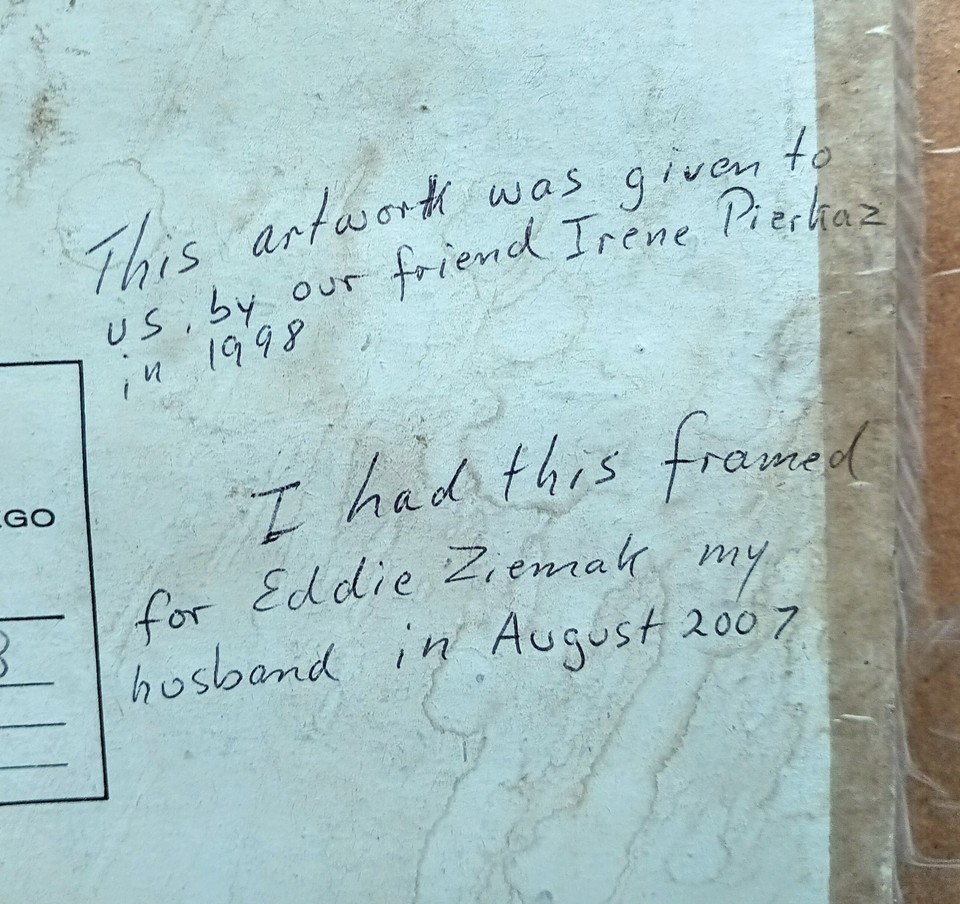 This artwork was given to
us, by our friend Irene Pierkaz
in 1998
I had this framed
for Eddie Ziemak my
husband in August 2007
EGO
3